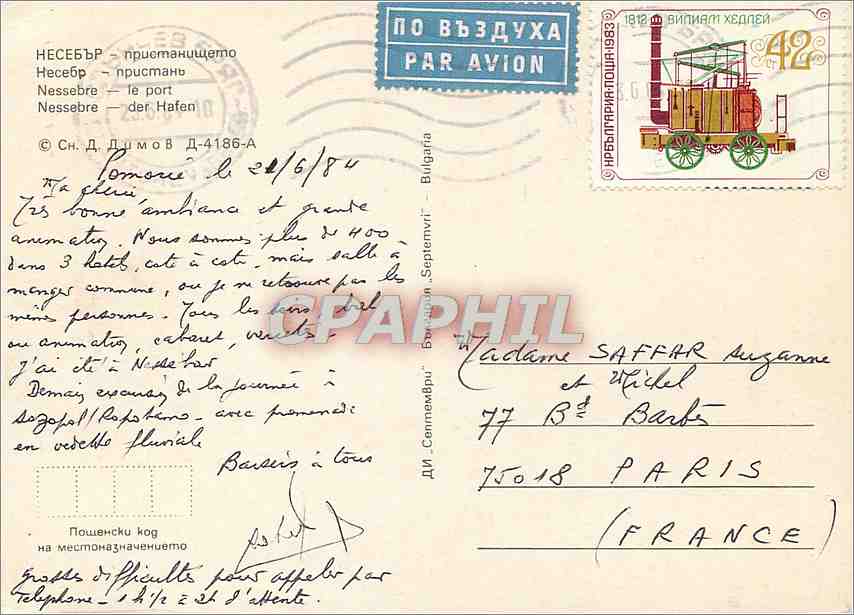 НЕСЕБЪР – пристанището
Несебр – пристань
Nessebre — le port
Nessebre — der Hafen
© Сн. Д. Димов Д-4186-А
ПО ВЪЗДУХА
PAR AVION
1813 ВИЛИАМ ХЕДЛЕЙ
42
НР БЪЛГАРИЯ·ПОЩА·1983
Pomorie le 21/6/84
Ma chérie
Très bonne ambiance et grande
animation. Nous sommes plus de 400
dans 3 hotels, cote à cote, mais salle à
manger commune, ou je ne retrouve pas les
mêmes personnes. Tous les soirs, bal
ou animation, cabaret,
J'ai été à Nessebar
Demain excursion de la journée à
Sozopol/Ropotamo – avec promenade
en vedette fluviale
Baisers à tous
ДИ „Септември" България „Septemvri" – Bulgaria
Madame SAFFAR Suzanne
et Michel
77 Bd Barbès
75018 PARIS
(FRANCE)
Пощенски код
на местоназначението
Grosses difficultés pour appeler par
Telephone – 1h1/2 à 2h d'attente.
CPAPHIL